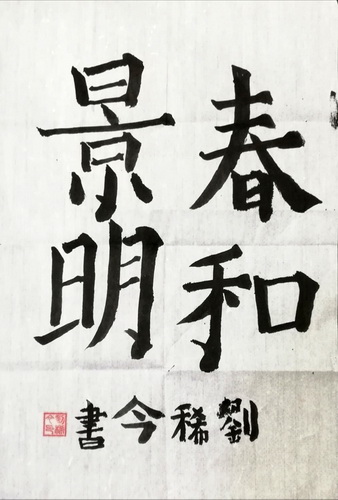 春和
景明
劉稀今書